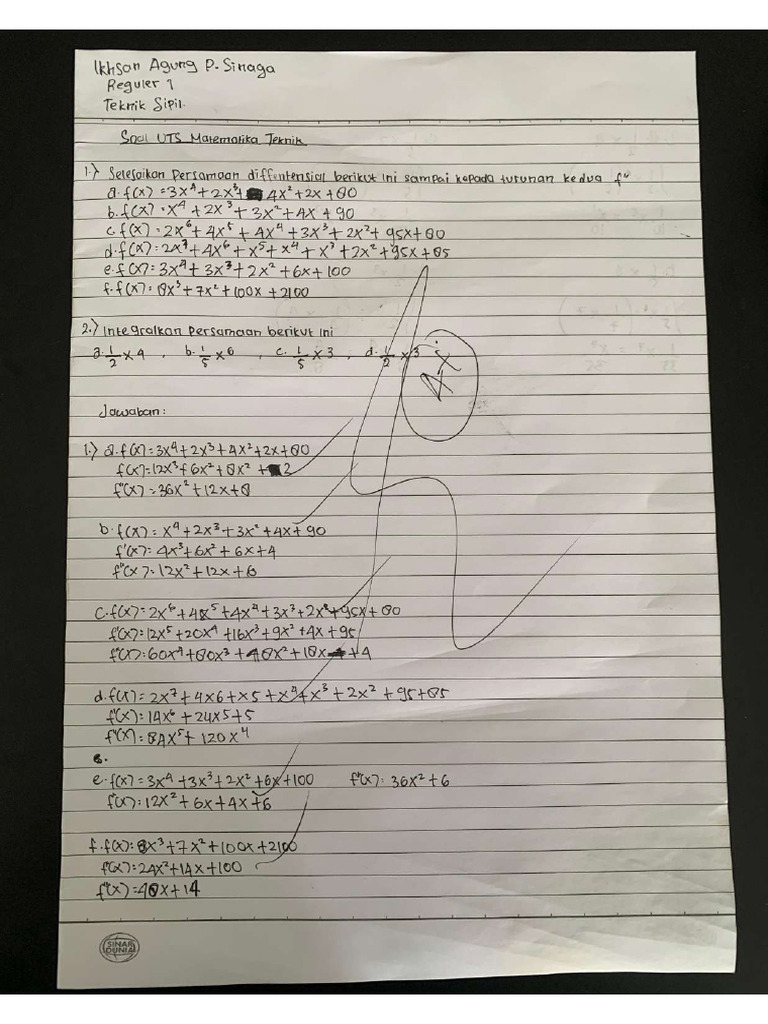 Ikhsan Agung P. Sinaga
Reguler 1
Teknik Sipil.
Soal UTS Matematika Teknik
1.) Selesaikan Persamaan diffentensial berikut ini sampai kepada turunan kedua f"
a. f(x) = 3x⁴ + 2x³ + 4x² + 2x + 80
b. f(x) = x⁴ + 2x³ + 3x² + 4x + 90
c. f(x) = 2x⁶ + 4x⁵ + 4x⁴ + 3x³ + 2x² + 95x + 80
d. f(x) = 2x⁷ + 4x⁶ + x⁵ + x⁴ + x³ + 2x² + 95x + 85
e. f(x) = 3x⁴ + 3x³ + 2x² + 6x + 100
f. f(x) = 8x³ + 7x² + 100x + 2100
2.) Integralkan Persamaan berikut ini
a. 1/2 x 4 , b. 1/5 x⁶ , c. 1/5 x 3 , d. 1/2 x³
Jawaban :
1.) a. f(x) = 3x⁴ + 2x³ + 4x² + 2x + 80
f'(x) = 12x³ + 6x² + 8x² + 2
f"(x) = 36x² + 12x + 8
b. f(x) = x⁴ + 2x³ + 3x² + 4x + 90
f'(x) = 4x³ + 6x² + 6x + 4
f"(x) = 12x² + 12x + 6
c. f(x) = 2x⁶ + 4x⁵ + 4x⁴ + 3x³ + 2x² + 95x + 80
f'(x) = 12x⁵ + 20x⁴ + 16x³ + 9x² + 4x + 95
f"(x) = 60x⁴ + 80x³ + 48x² + 18x + 4
d. f(x) = 2x⁷ + 4x6 + x5 + x⁴ + x³ + 2x² + 95 + 85
f'(x) = 14x⁶ + 24x5 + 5
f"(x) = 84x⁵ + 120x⁴
e. f(x) = 3x⁴ + 3x³ + 2x² + 6x + 100 f"(x) = 36x² + 6
f'(x) = 12x² + 6x + 4x + 6
f. f(x) = 8x³ + 7x² + 100x + 2100
f'(x) = 24x² + 14x + 100
f"(x) = 48x + 14
SINAR
DUNIA